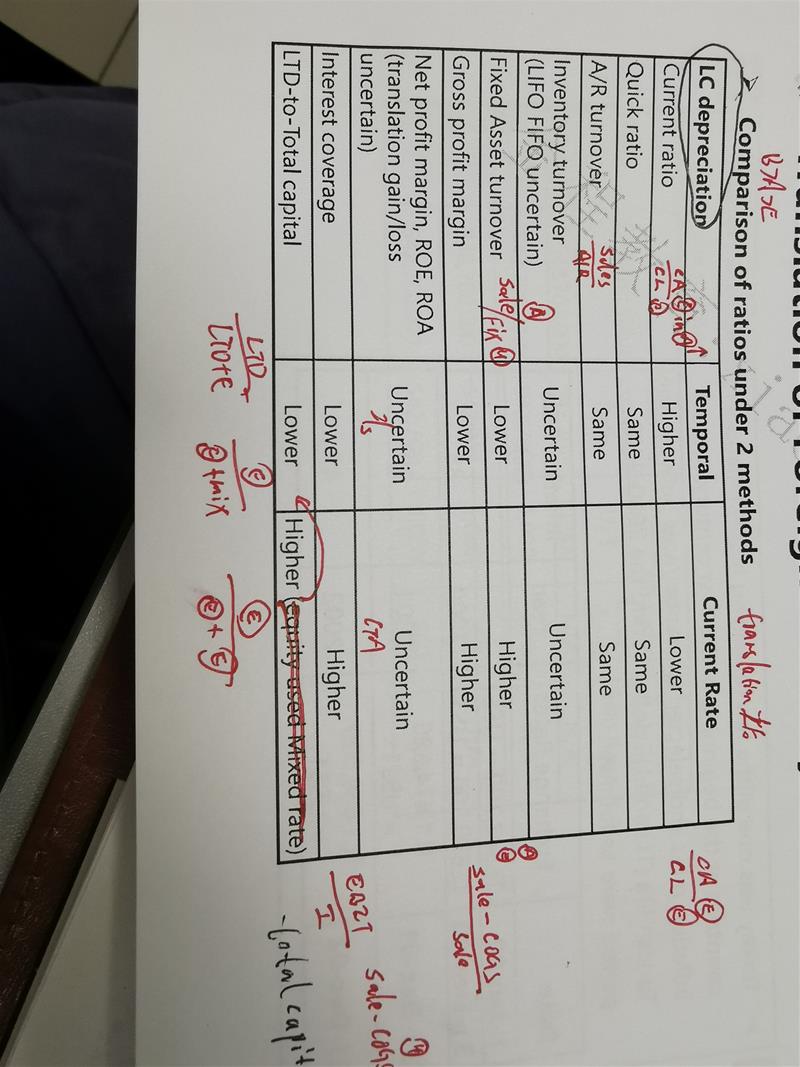 Comparison of ratios under 2 methods
LC depreciation Temporal Current Rate
Current ratio Higher Lower
Quick ratio Same Same
A/R turnover Same Same
Inventory turnover
(LIFO FIFO uncertain) Uncertain Uncertain
Fixed Asset turnover Lower Higher
Gross profit margin Lower Higher
Net profit margin, ROE, ROA
(translation gain/loss
uncertain) Uncertain Uncertain
Interest coverage Lower Higher
LTD-to-Total capital Lower Higher (equity used Mixed rate)
CA
CL
sales
A/R
Sale/Fix
I/S
CTA
CA E
CL E
sale-COGS
sale
EBIT
I
sale-COGS
LTD
LTD+E
E
E + mix
E
E + E
-total capit